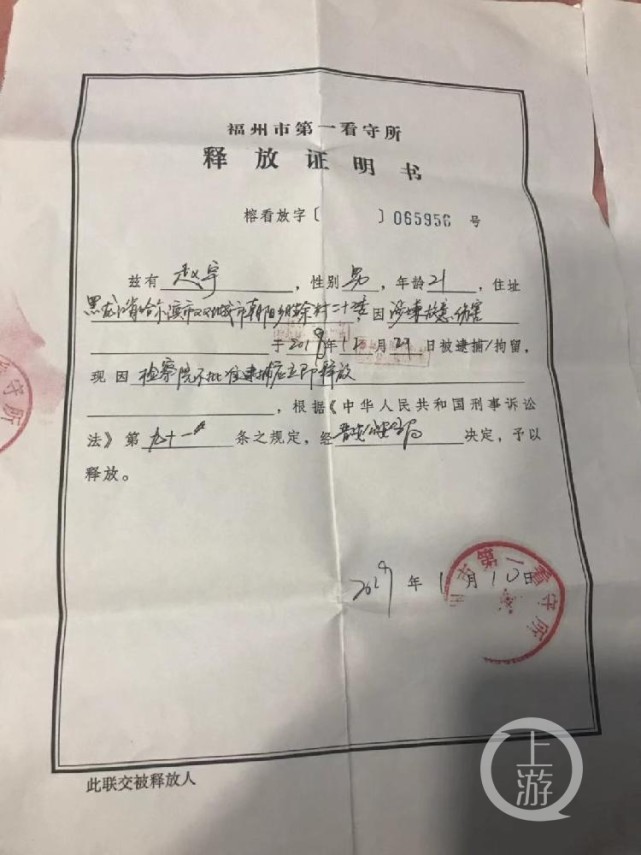 福州市第一看守所
释放证明书
榕看放字〔 〕065956 号
兹有 赵宇 ，性别 男 ，年龄 21 ，住址
黑龙江省哈尔滨市双城市朝阳乡 ，因 涉嫌故意伤害
于 2018 年 12 月 29 日被逮捕/拘留，
现因 检察院不批准逮捕应立即释放
，根据《中华人民共和国刑事诉讼
法》第 九十一 条之规定，经 晋安公安分局 决定，予以
释放。
2019 年 1 月 10 日
第一看守所
此联交被释放人
守所
上游